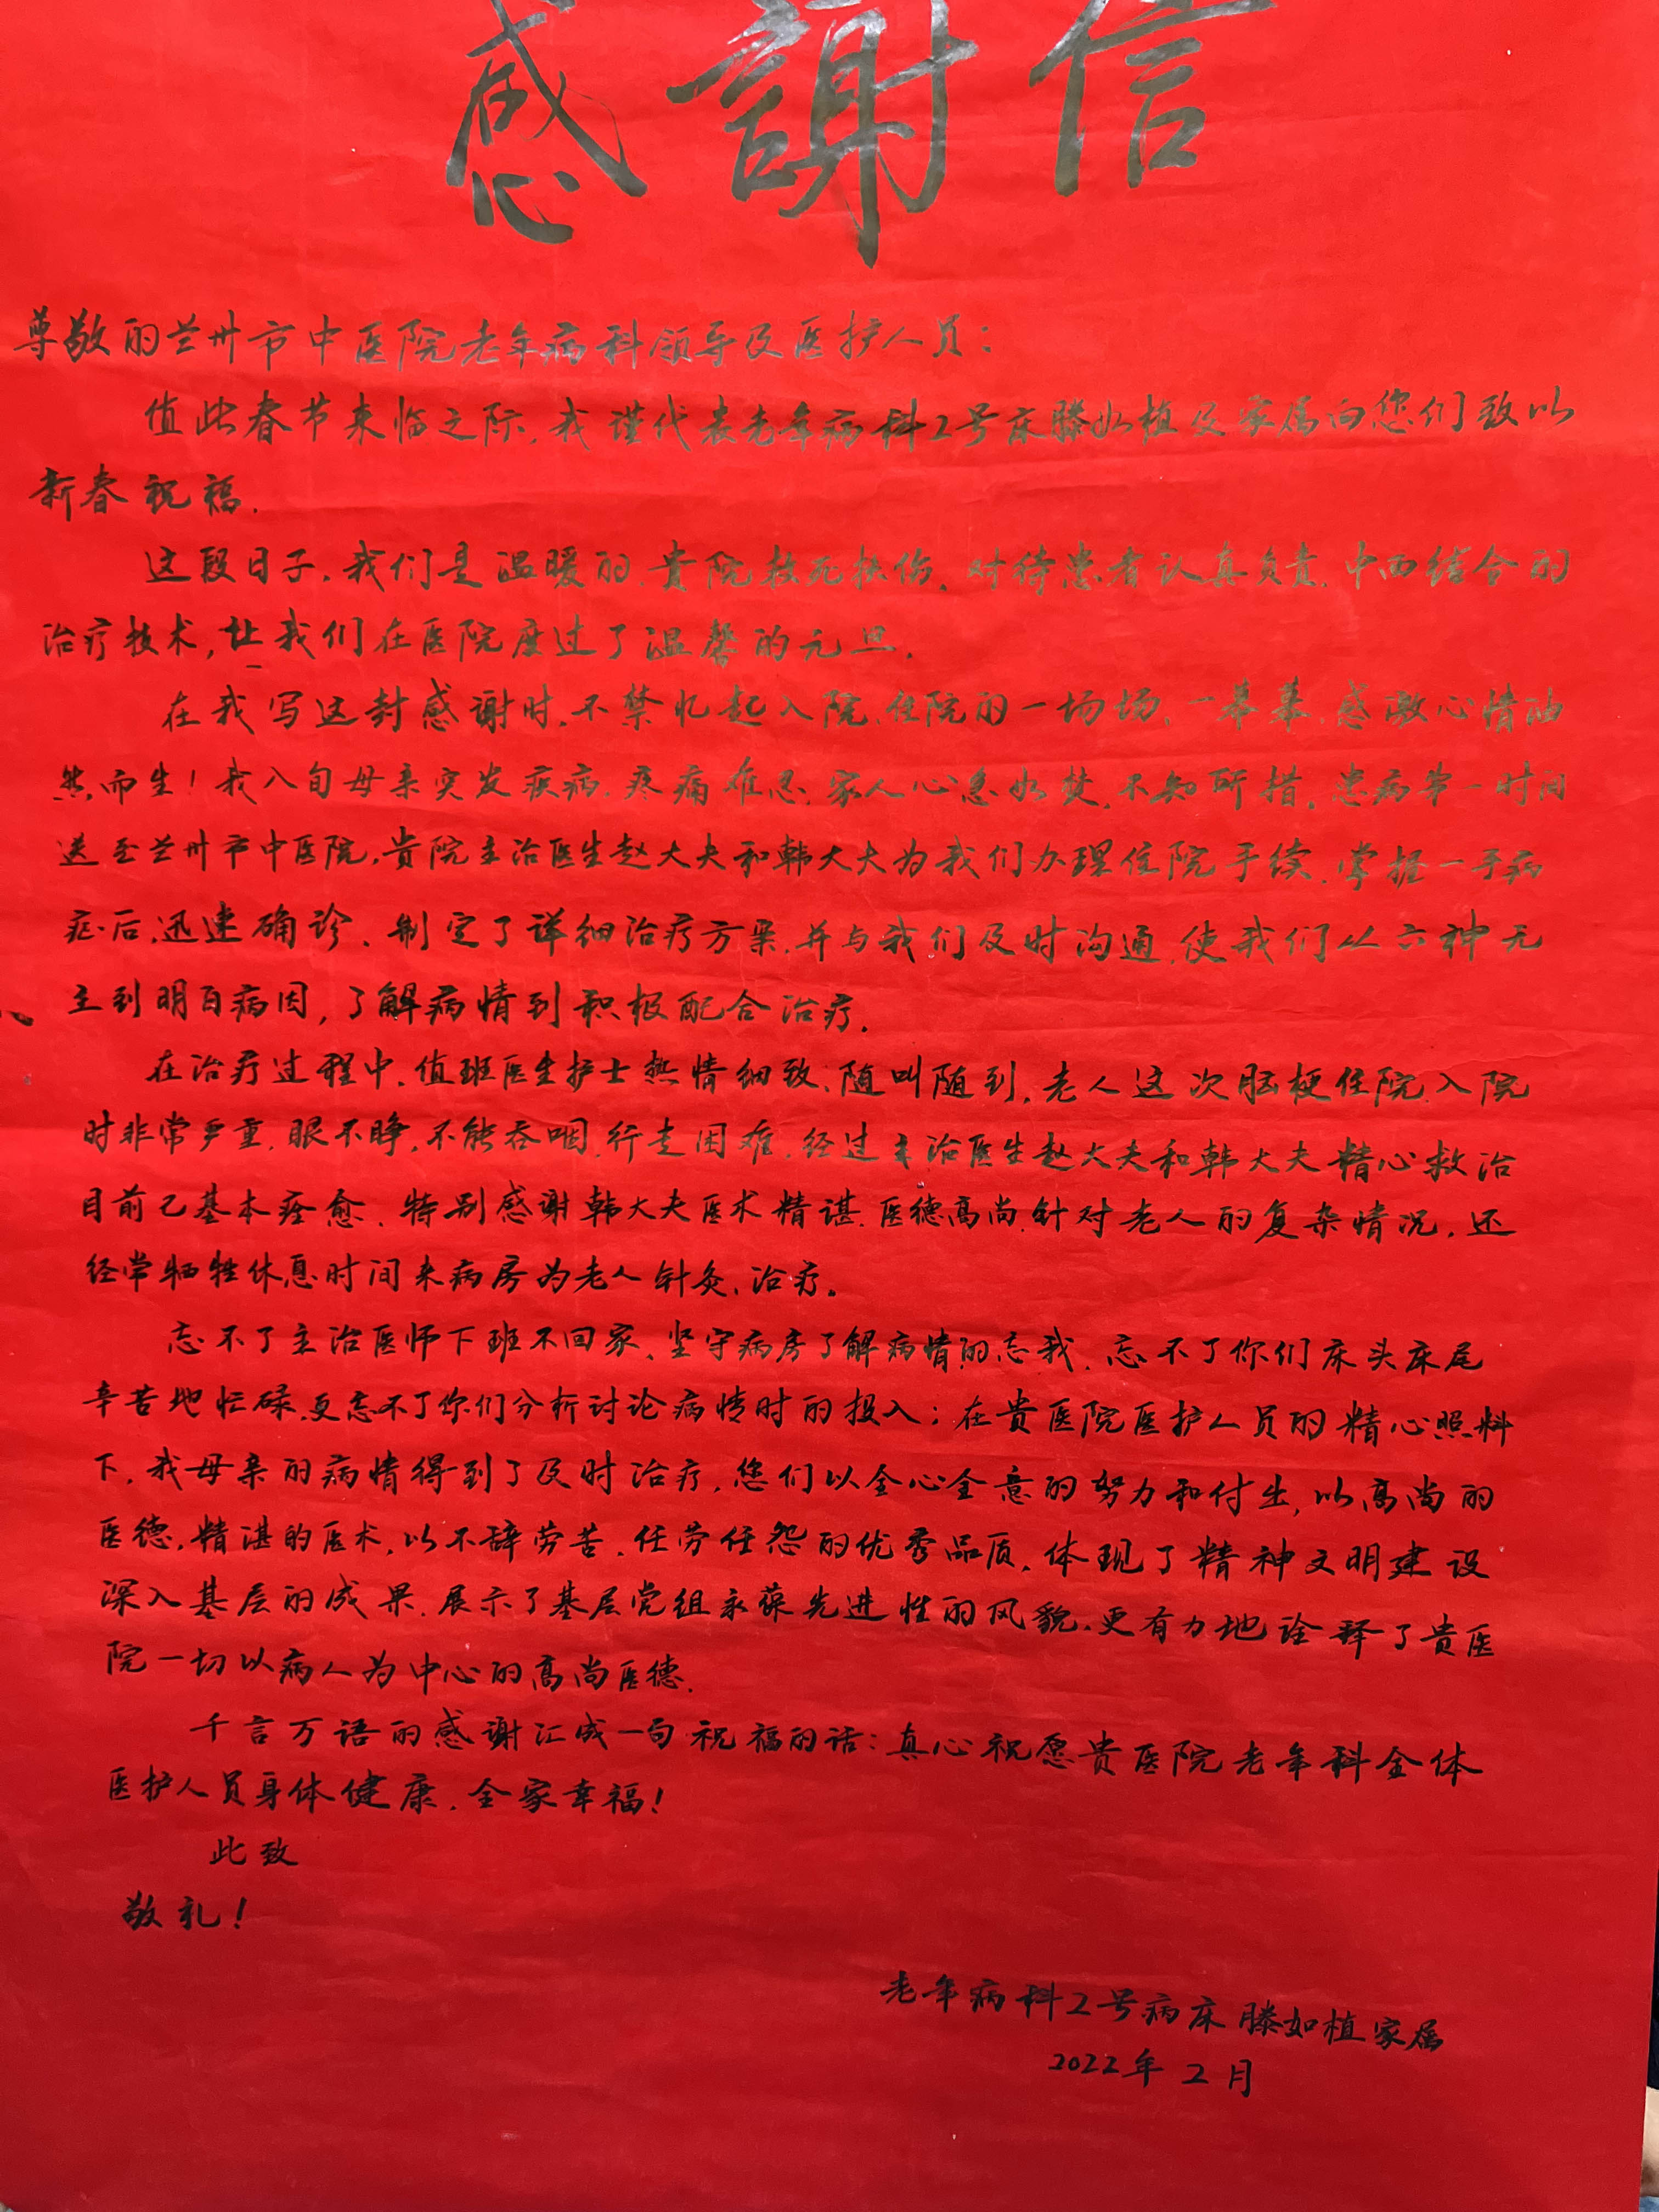 感謝信
尊敬的兰州市中医院老年病科领导及医护人员：
值此春节来临之际，我谨代表老年病科2号床滕如植及家属向您们致以
新春祝福.
这段日子，我们是温暖的.贵院救死扶伤、对待患者认真负责，中西结合的
治疗技术，让我们在医院度过了温馨的元旦，
在我写这封感谢时，不禁忆起入院、住院的一场场、一幕幕，感激心情油
然而生！我八旬母亲突发疾病，疼痛难忍，家人心急如焚，不知所措。患病第一时间
送至兰州市中医院，贵院主治医生赵大夫和韩大夫为我们办理住院手续，掌握一手病
症后，迅速确诊、制定了详细治疗方案，并与我们及时沟通，使我们从六神无
主到明白病因，了解病情到积极配合治疗。
在治疗过程中，值班医生护士热情细致、随叫随到，老人这次脑梗住院，入院
时非常严重，眼不睁，不能吞咽，行走困难，经过主治医生赵大夫和韩大夫精心救治
目前已基本痊愈，特别感谢韩大夫医术精谌，医德高尚，针对老人的复杂情况，还
经常牺牲休息时间来病房为老人针灸、治疗。
忘不了主治医师下班不回家、坚守病房了解病情的忘我，忘不了你们床头床尾
辛苦地忙碌，更忘不了你们分析讨论病情时的投入；在贵医院医护人员的精心照料
下，我母亲的病情得到了及时治疗，您们以全心全意的努力和付出，以高尚的
医德，精湛的医术，以不辞劳苦，任劳任怨的优秀品质，体现了精神文明建设
深入基层的成果，展示了基层党组永葆先进性的风貌，更有力地诠释了贵医
院一切以病人为中心的高尚医德.
千言万语的感谢汇成一句祝福的话：真心祝愿贵医院老年科全体
医护人员身体健康，全家幸福！
此致
敬礼！
老年病科2号病床滕如植家属
2022年2月